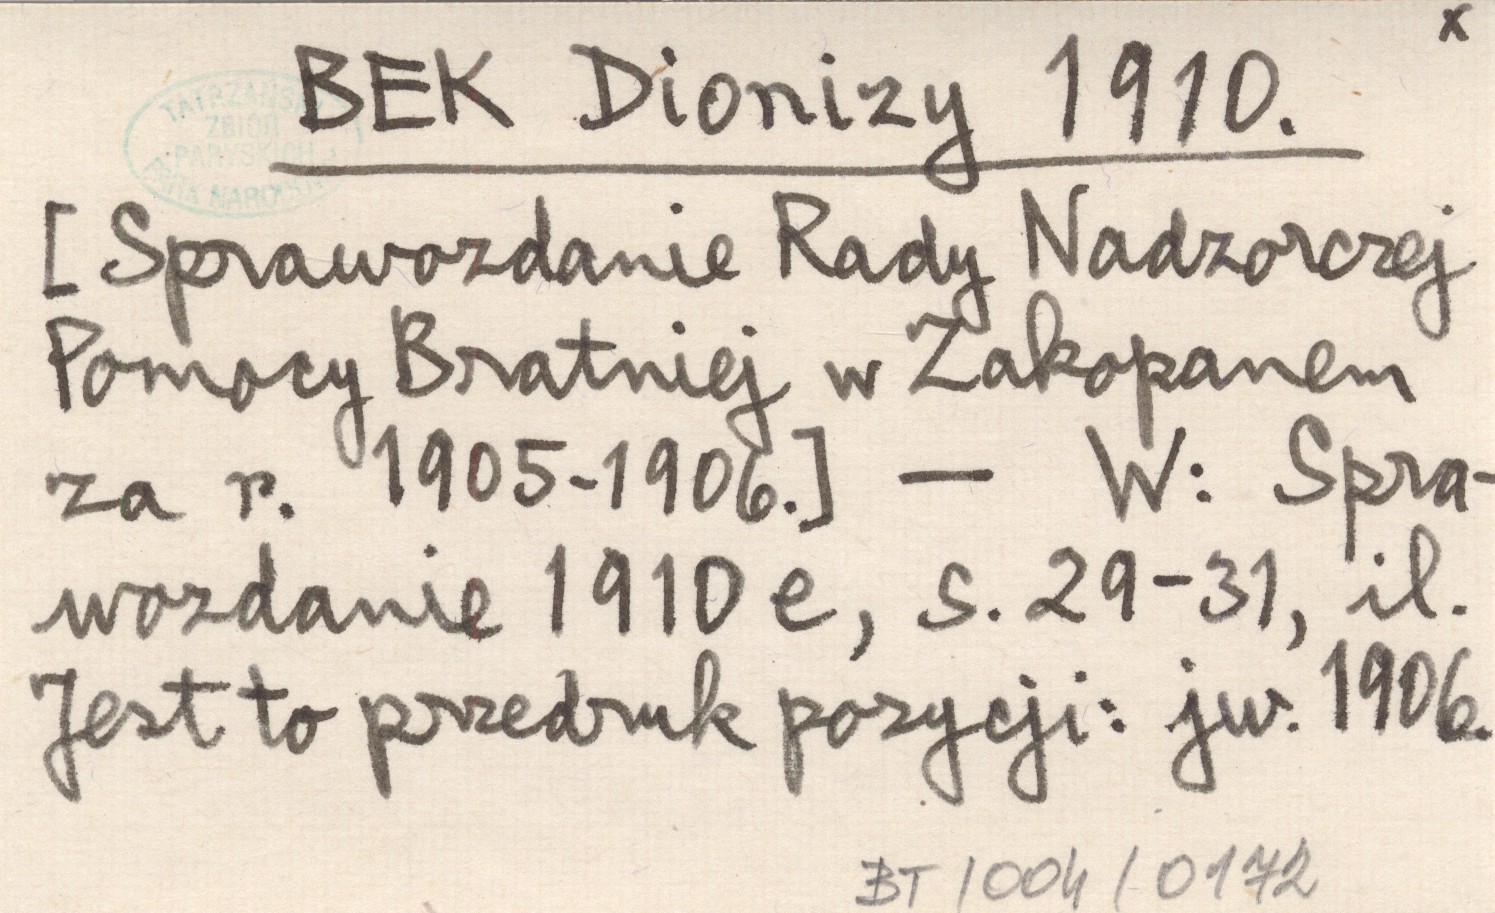 x
BEK Dionizy 1910.
TATRZAŃSKI
ZBIÓR
PARYSKICH
[Sprawozdanie Rady Nadzorczej
Pomocy Bratniej w Zakopanem
za r. 1905-1906.] — W: Spra-
wozdanie 1910 e, s. 29-31, il.
Jest to przedruk pozycji: jw. 1906.
BT/004/0172